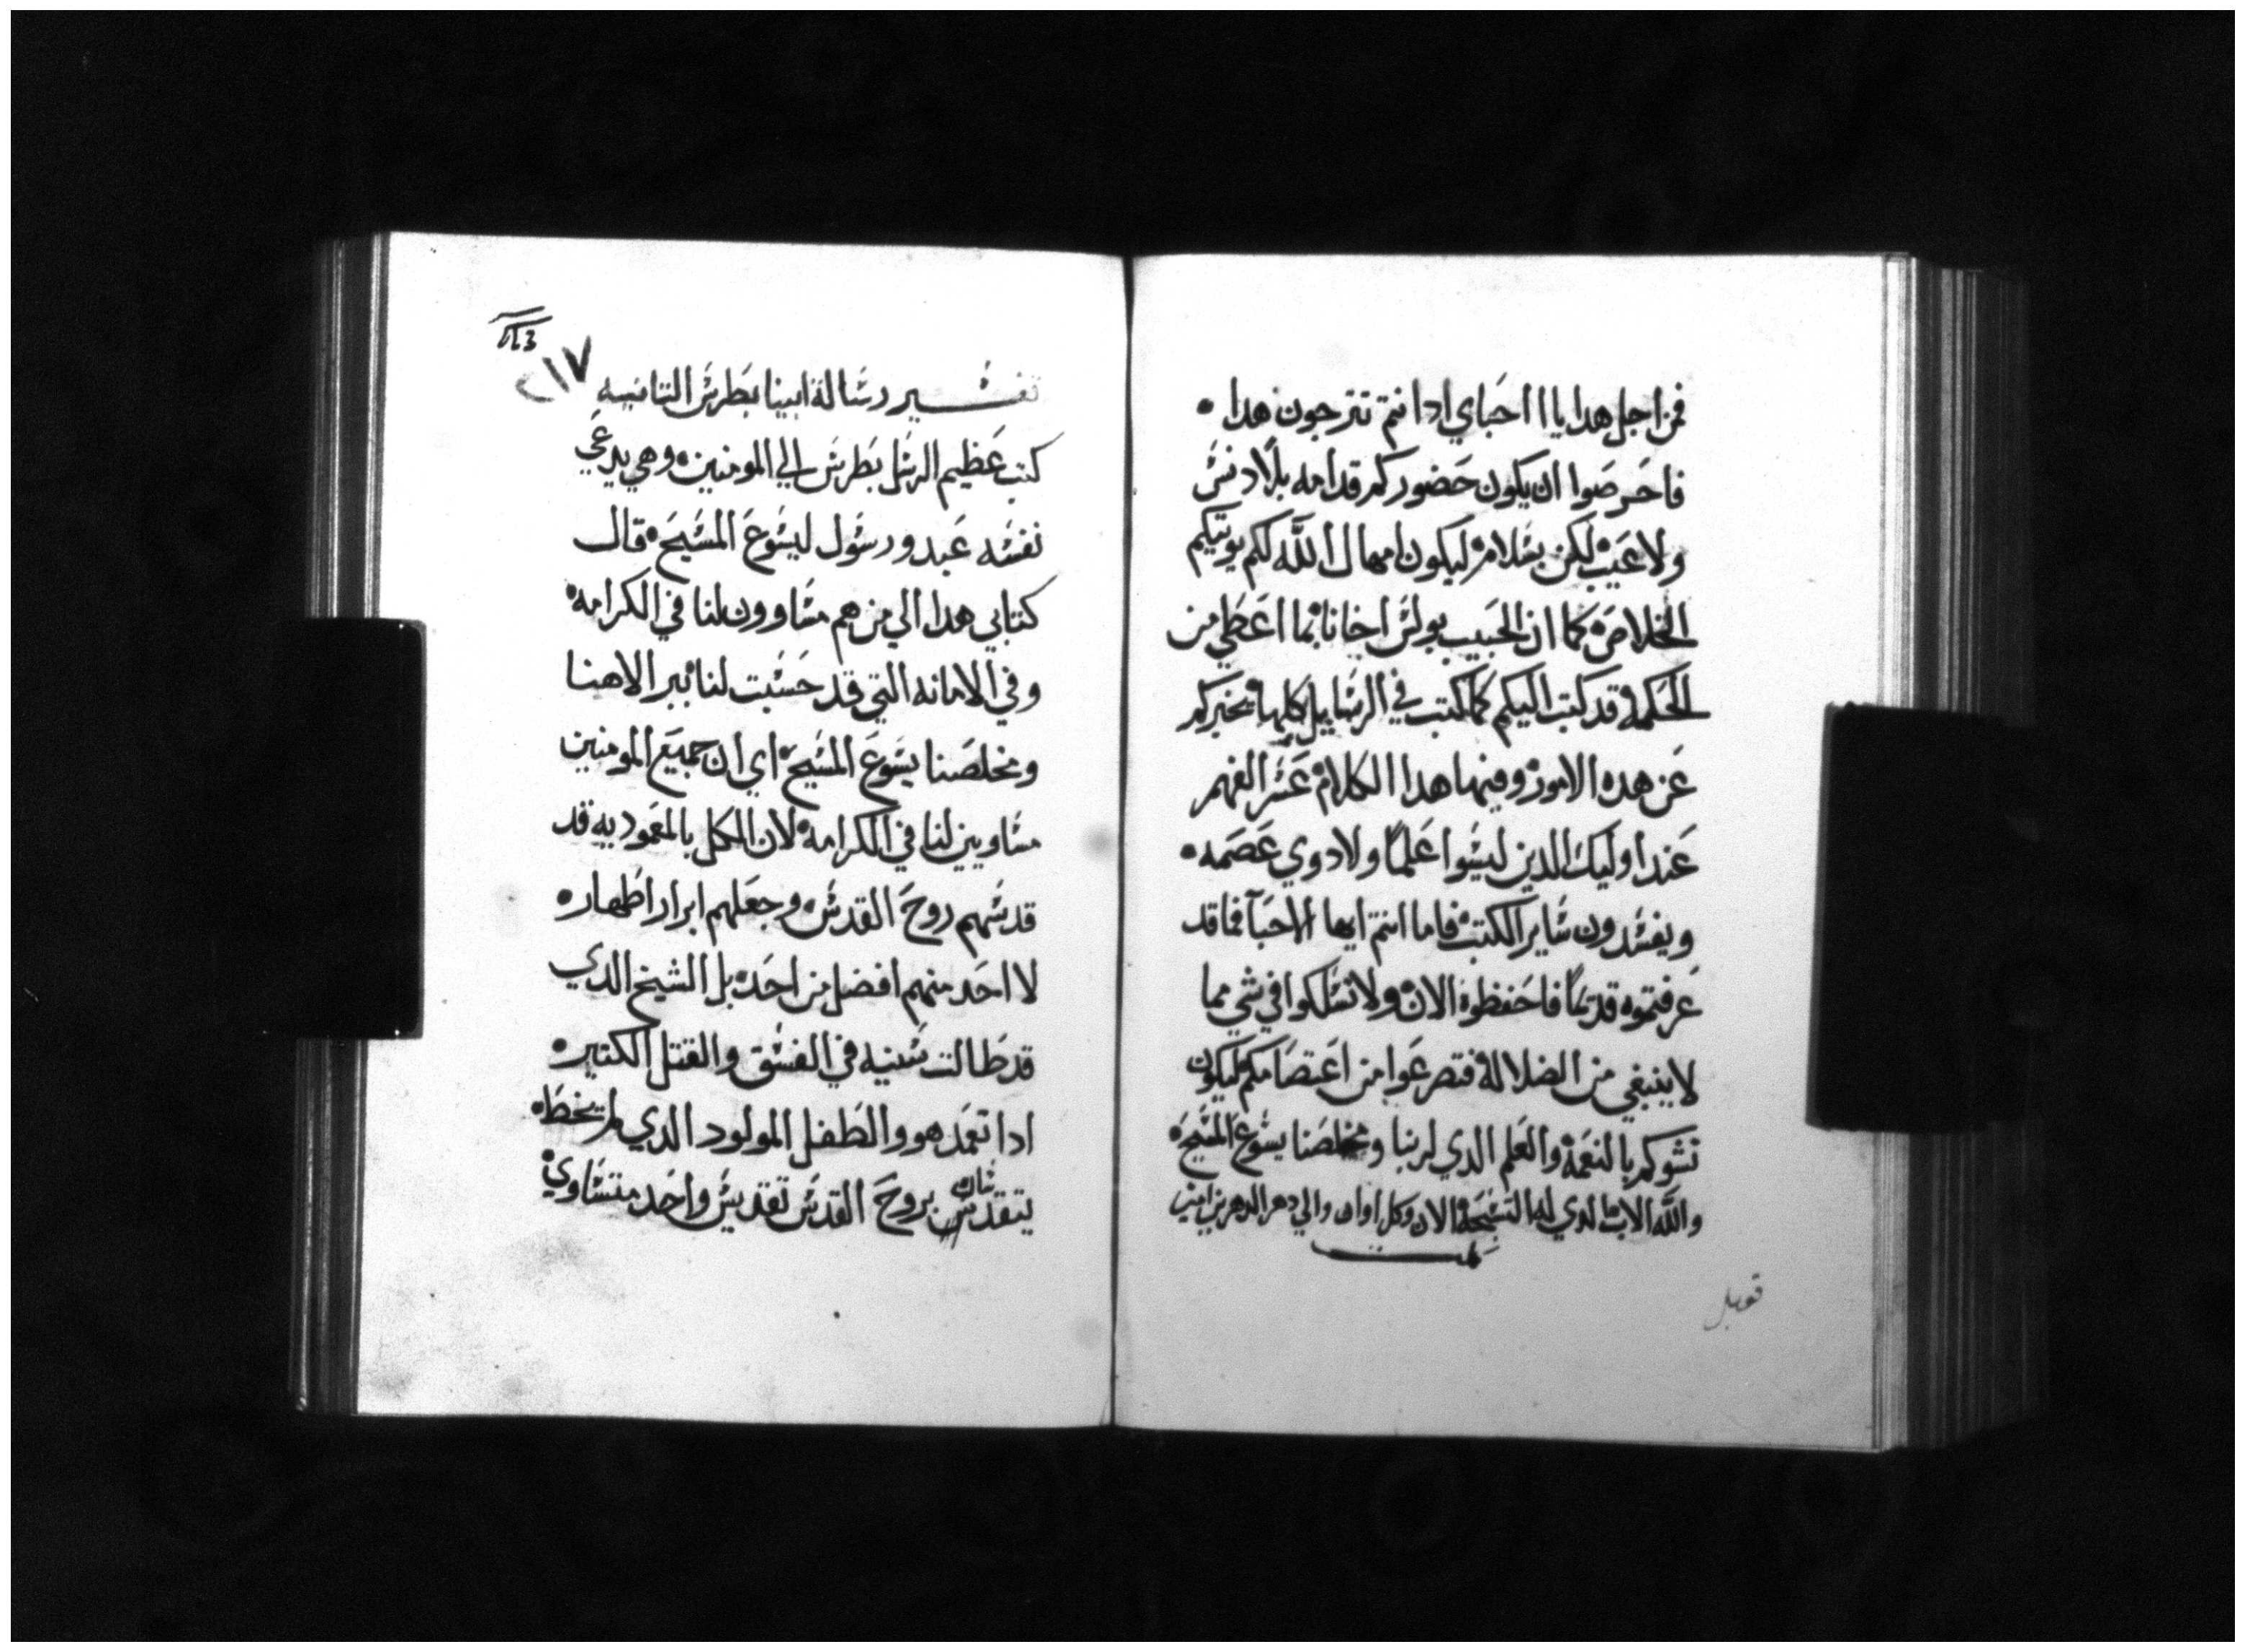 فمن اجل هدا يا احباي ادا انتم تترجون هدا
فاحرصوا ان يكون حضوركم قدامه بلا دنس
ولا عيب لكن بسلام ليكون امهال الله لكم يوتيكم
الخلاص كما ان الحبيب بولس اخانا بما اعطي من
الحكمة قد كتب اليكم كما كتب في الرسايل كلها يخبركم
عن هده الامور وفيها هدا الكلام عسر الفهم
عند اوليك الدين ليسوا علما ولا دوي عصمه
ويفسدون ساير الكتب فاما انتم ايها الاحبآ فما قد
عرفتموه قديماً فاحفظوه الان ولا تسلكوا في شي مما
لا ينبغي من الضلالة فتصرعوا من اعتصامكم ليكون
نشوكم بالنعمة والعلم الدي لربنا ومخلصنا يسوع المسيح
والله الاب الدي له التسبحة الان وكل اوان والي دهر الداهرين امين
تمت
قوبل
٢١٧
تفسير رسالة ابينا بطرس التانيه
كتب عظيم الرسل بطرس الي المومنين وهي يدعي
نفسه عبد ورسول ليسوع المسيح قال
كتابي هدا الي من هم مساوون لنا في الكرامه
وفي الامانه التي قد حسبت لنا ببر الاهنا
ومخلصنا يسوع المسيح اي ان جميع المومنين
مساويين لنا في الكرامه لان الكل بالمعموديه قد
قدسهم روح القدس وجعلهم ابرار اطهار
لا احد منهم افضل من احد بل الشيخ الدي
قد طالت سنيه في الفسق والقتل الكتير
ادا تعمد هو والطفل المولود الدي لم يخط
يتقدسان بروح القدس تقديس واحد متساوي